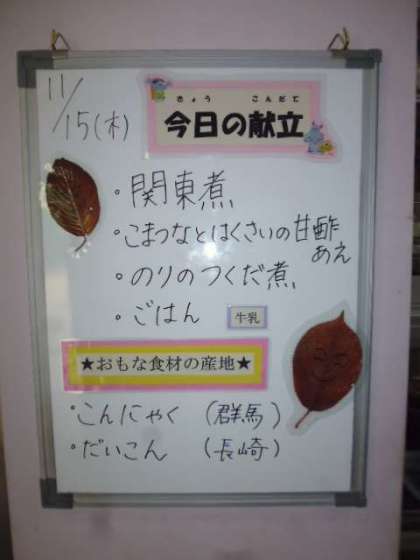 11/15(木)
きょう こんだて
今日の献立
・関東煮
・こまつなとはくさいの甘酢
あえ
・のりのつくだ煮
・ごはん 牛乳
★おもな食材の産地★
・こんにゃく (群馬)
・だいこん (長崎)